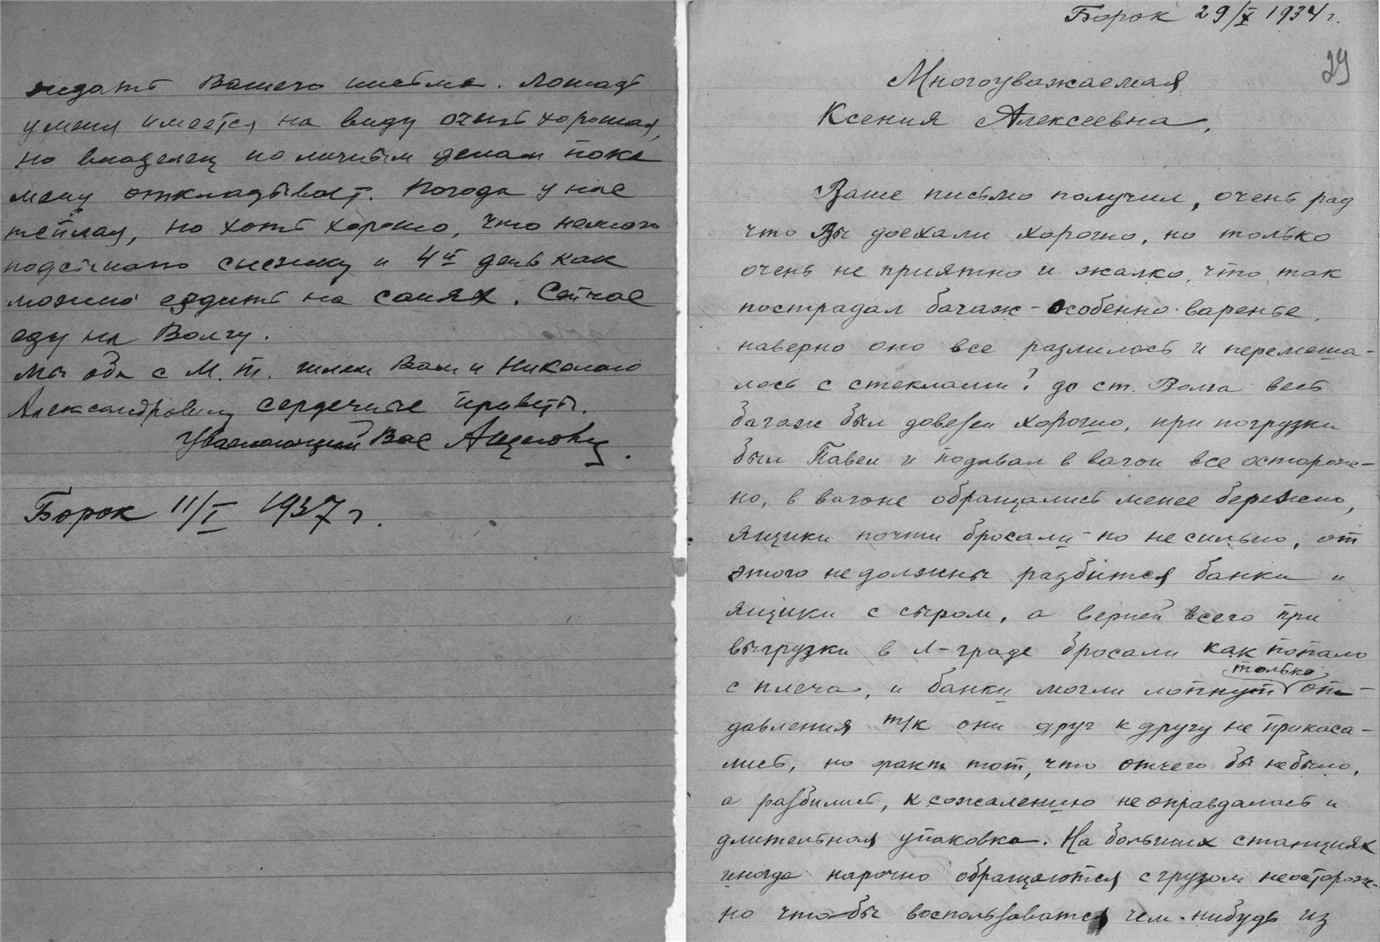 ждать Вашего письма. Лошадь
у меня имеется на виду очень хорошая,
но владелец по личным делам пока
мену откладывает. Погода у нас
тёплая, но хоть хорошо, что немного
подсыпало снежку и 4й день как
можно ездить на санях. Сейчас
еду на Волгу.
Мы оба с М. Т. шлем Вам и Николаю
Александровичу сердечные приветы.
Уважающий Вас
Борок 11/I 1937 г.
Борок 29/X 1934 г.
29
Многоуважаемая
Ксения Алексеевна,
Ваше письмо получил, очень рад
что Вы доехали хорошо, но только
очень не приятно и жалко, что так
пострадал багаж - особенно варенье,
наверно оно все разлилось и перемеша-
лось с стеклами? до ст. Волга весь
багаж был довезен хорошо, при погрузки
был Павел и подавал в вагон все осторож-
но, в вагоне обращались менее бережно,
ящики почти бросали - но не сильно, от
этого не должны разбится банки и
ящики с сыром, а верней всего при
выгрузки в Л-граде бросали как попало
с плеча, и банки могли лопнуть только от
давления т/к они друг к другу не прикаса-
лись, но факт тот, что отчего бы небыло,
а разбились, к сожалению не оправдалась и
длительная упаковка. На больших станциях
иногда нарочно обращаются с грузом неосторож-
но что бы воспользоватся чем-нибудь из